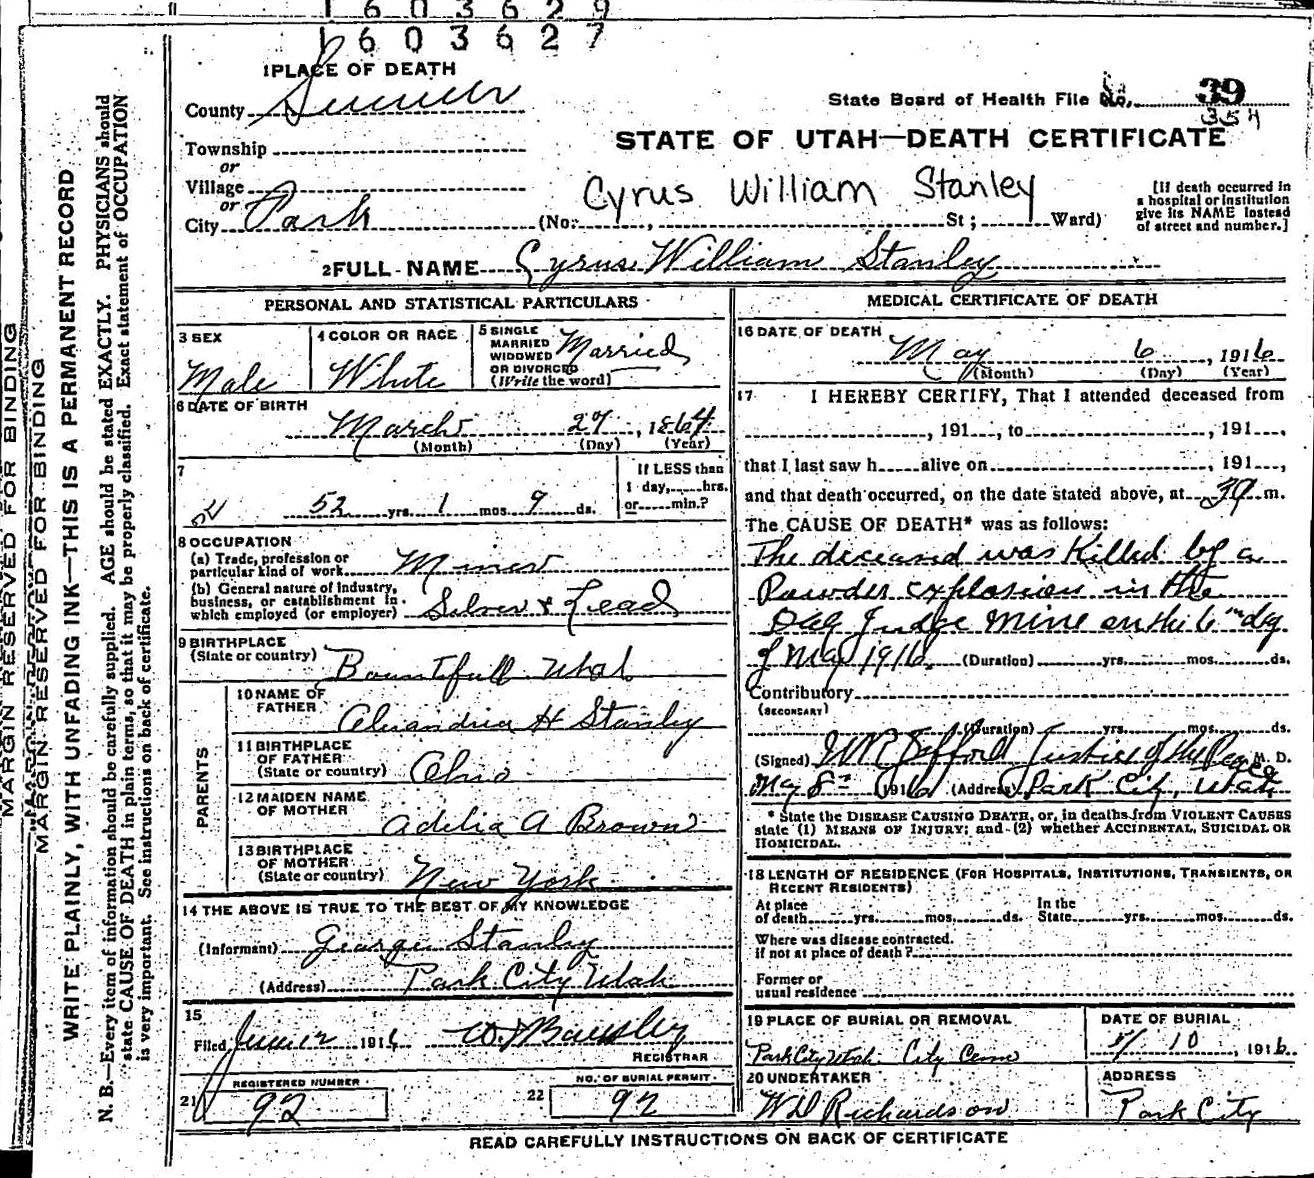 1 6 0 3 6 2 9
1 6 0 3 6 2 7
MARGIN RESERVED FOR BINDING
MARGIN RESERVED FOR BINDING
WRITE PLAINLY, WITH UNFADING INK—THIS IS A PERMANENT RECORD
N. B.—Every item of information should be carefully supplied. AGE should be stated EXACTLY. PHYSICIANS should
state CAUSE OF DEATH in plain terms, so that it may be properly classified. Exact statement of OCCUPATION
is very important. See instructions on back of certificate.
1 PLACE OF DEATH
County
Township
or
Village
or
City Park
State Board of Health File No. 39
354
STATE OF UTAH—DEATH CERTIFICATE
Cyrus William Stanley
(No. , St ; Ward)
[If death occurred in
a hospital or institution
give its NAME instead
of street and number.]
2 FULL NAME Cyrus William Stanley
PERSONAL AND STATISTICAL PARTICULARS
3 SEX
Male
4 COLOR OR RACE
White
5 SINGLE
MARRIED
WIDOWED
OR DIVORCED
(Write the word)
Married
6 DATE OF BIRTH
March 27, 1864
(Month) (Day) (Year)
7
52 yrs. 1 mos. 9 ds.
If LESS than
1 day, hrs.
or min.?
8 OCCUPATION
(a) Trade, profession or
particular kind of work Miner
(b) General nature of industry,
business, or establishment in
which employed (or employer) Silver & Lead
9 BIRTHPLACE
(State or country) Bountifull Utah
PARENTS
10 NAME OF
FATHER
H Stanley
11 BIRTHPLACE
OF FATHER
(State or country) Ohio
12 MAIDEN NAME
OF MOTHER
Adelia A Brown
13 BIRTHPLACE
OF MOTHER
(State or country) New York
14 THE ABOVE IS TRUE TO THE BEST OF MY KNOWLEDGE
(Informant) George Stanley
(Address) Park City Utah
15
Filed June 12 1916
REGISTRAR
REGISTERED NUMBER
21 92
NO. OF BURIAL PERMIT
22 92
MEDICAL CERTIFICATE OF DEATH
16 DATE OF DEATH
May 6, 1916
(Month) (Day) (Year)
17 I HEREBY CERTIFY, That I attended deceased from
, 191 , to , 191 ,
that I last saw h alive on , 191 ,
and that death occurred, on the date stated above, at m.
The CAUSE OF DEATH* was as follows:
The deceased was Killed by a
Powder explosion in the
Daly Judge Mine on the 6 day
of May 1916. (Duration) yrs. mos. ds.
Contributory
(SECONDARY)
(Duration) yrs. mos. ds.
(Signed) Justice of the Peace M. D.
May 8 1916 (Address) Park City, Utah
* State the DISEASE CAUSING DEATH, or, in deaths from VIOLENT CAUSES
state (1) MEANS OF INJURY; and (2) whether ACCIDENTAL, SUICIDAL OR
HOMICIDAL.
18 LENGTH OF RESIDENCE (FOR HOSPITALS, INSTITUTIONS, TRANSIENTS, OR
RECENT RESIDENTS)
At place
of death yrs. mos. ds. In the State yrs. mos. ds.
Where was disease contracted.
if not at place of death?
Former or
usual residence
19 PLACE OF BURIAL OR REMOVAL
Park City Utah City Cem
DATE OF BURIAL
5/ 10, 1916
20 UNDERTAKER
W D Richardson
ADDRESS
Park City
READ CAREFULLY INSTRUCTIONS ON BACK OF CERTIFICATE